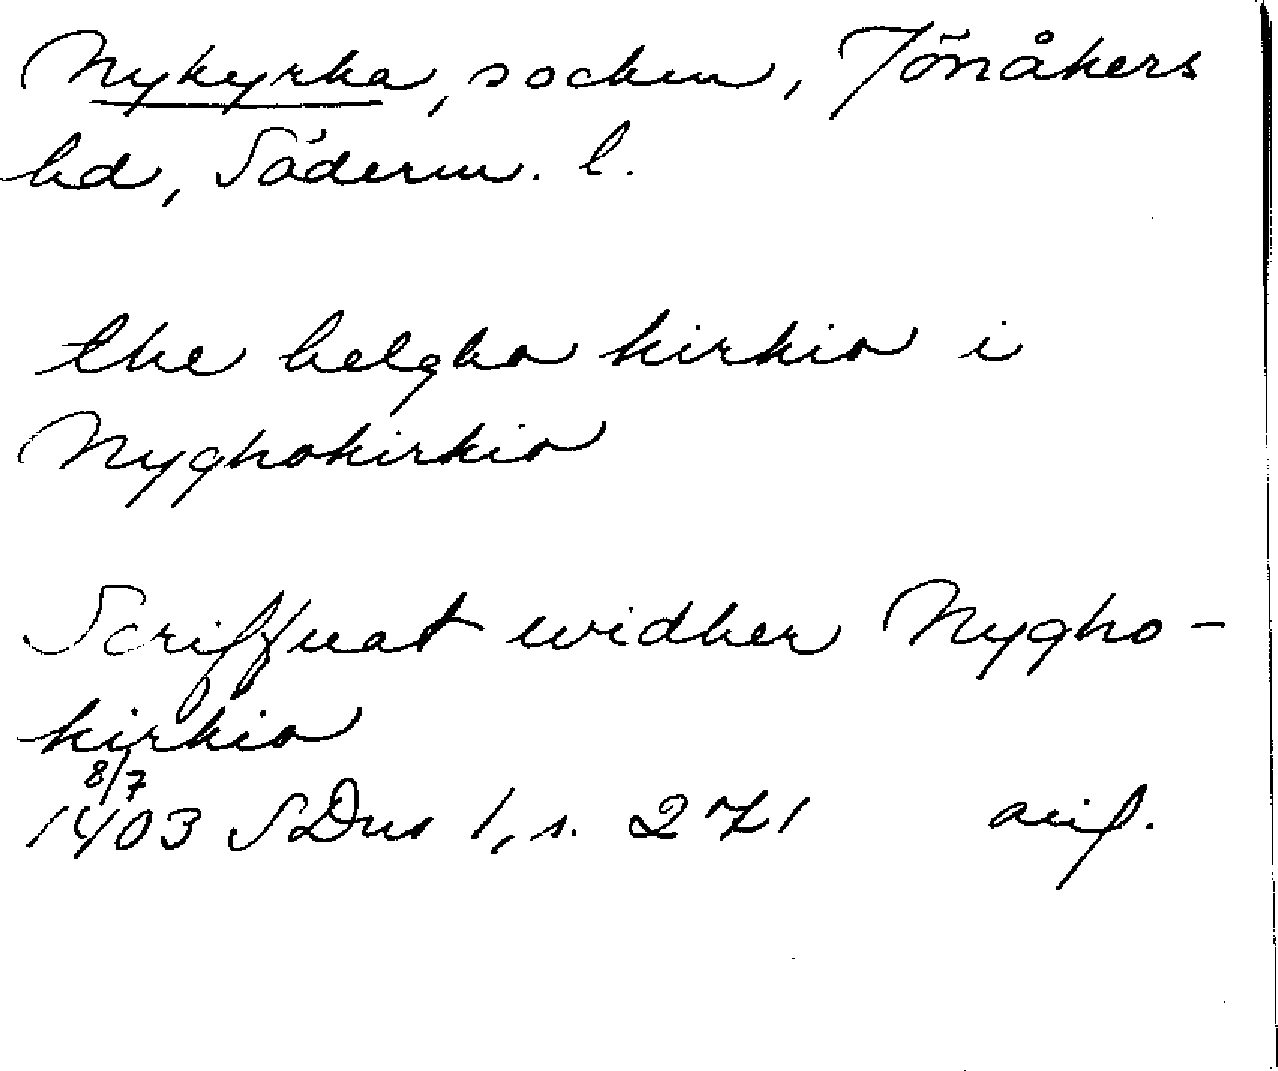 Nykyrka, socken, Jönåkers
hd, Söderm. l.
the helgho kirkio i
Nyghokirkio
Scriffuat widher Nygho-
kirkio
8/7
1403 SDns 1, s. 271 avs.